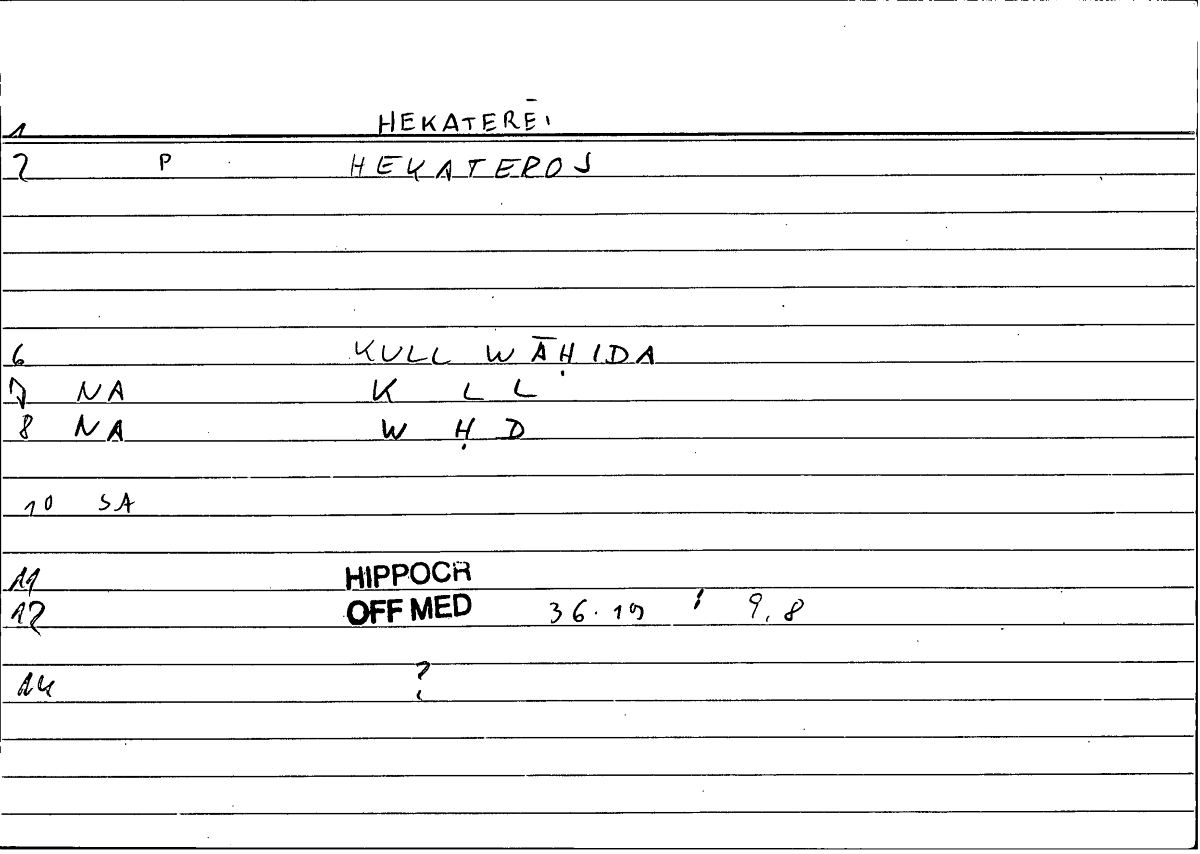 1 HEKATERĒI
2 P HEKATEROS
6 KULL WĀḤIDA
7 NA K L L
8 NA W Ḥ D
10 SA
11 HIPPOCR
12 OFF MED 36.19 : 9,8
14 ?